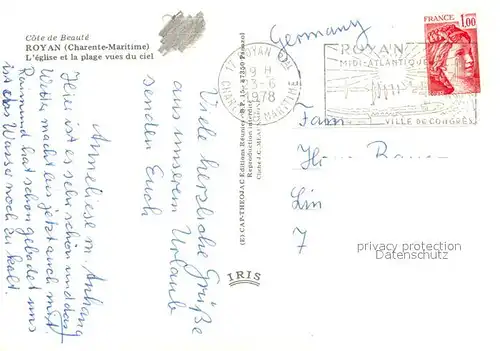 Côte de Beauté
ROYAN (Charente-Maritime)
L'église et la plage vues du ciel
Germany
FRANCE
1,00
17 ROYAN
9 H
6
1978
CHARENTE MARITIME
ROYAN
MIDI-ATLANTIQUE
VILLE DE CONGRÈS
Viele herzliche Grüße
aus unserem Urlaub
senden Euch
Anneliese m. Anhang
Hier ist es sehr schön und das
Wetter macht bis jetzt auch mit.
Raimund hat schon gebadet uns
ist das Wasser noch zu kalt.
(E) CAP-THEOJAC Editions Réunies
Reproduction interdite
IRIS
Fam.
Lin
7
privacy protection
Datenschutz